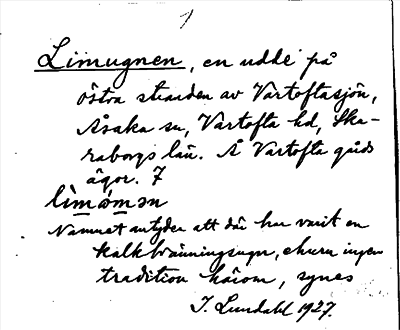 Limugnen, en udde på
östra stranden av Vartoftasjön,
Åsaka sn, Vartofta hd, Ska-
raborgs län. Å Vartofta gårds
ägor. 7
Namnet antyder att där har varit en
kalkbränningsugn, ehuru ingen
tradition härom, synes
I. Lundahl 1927.